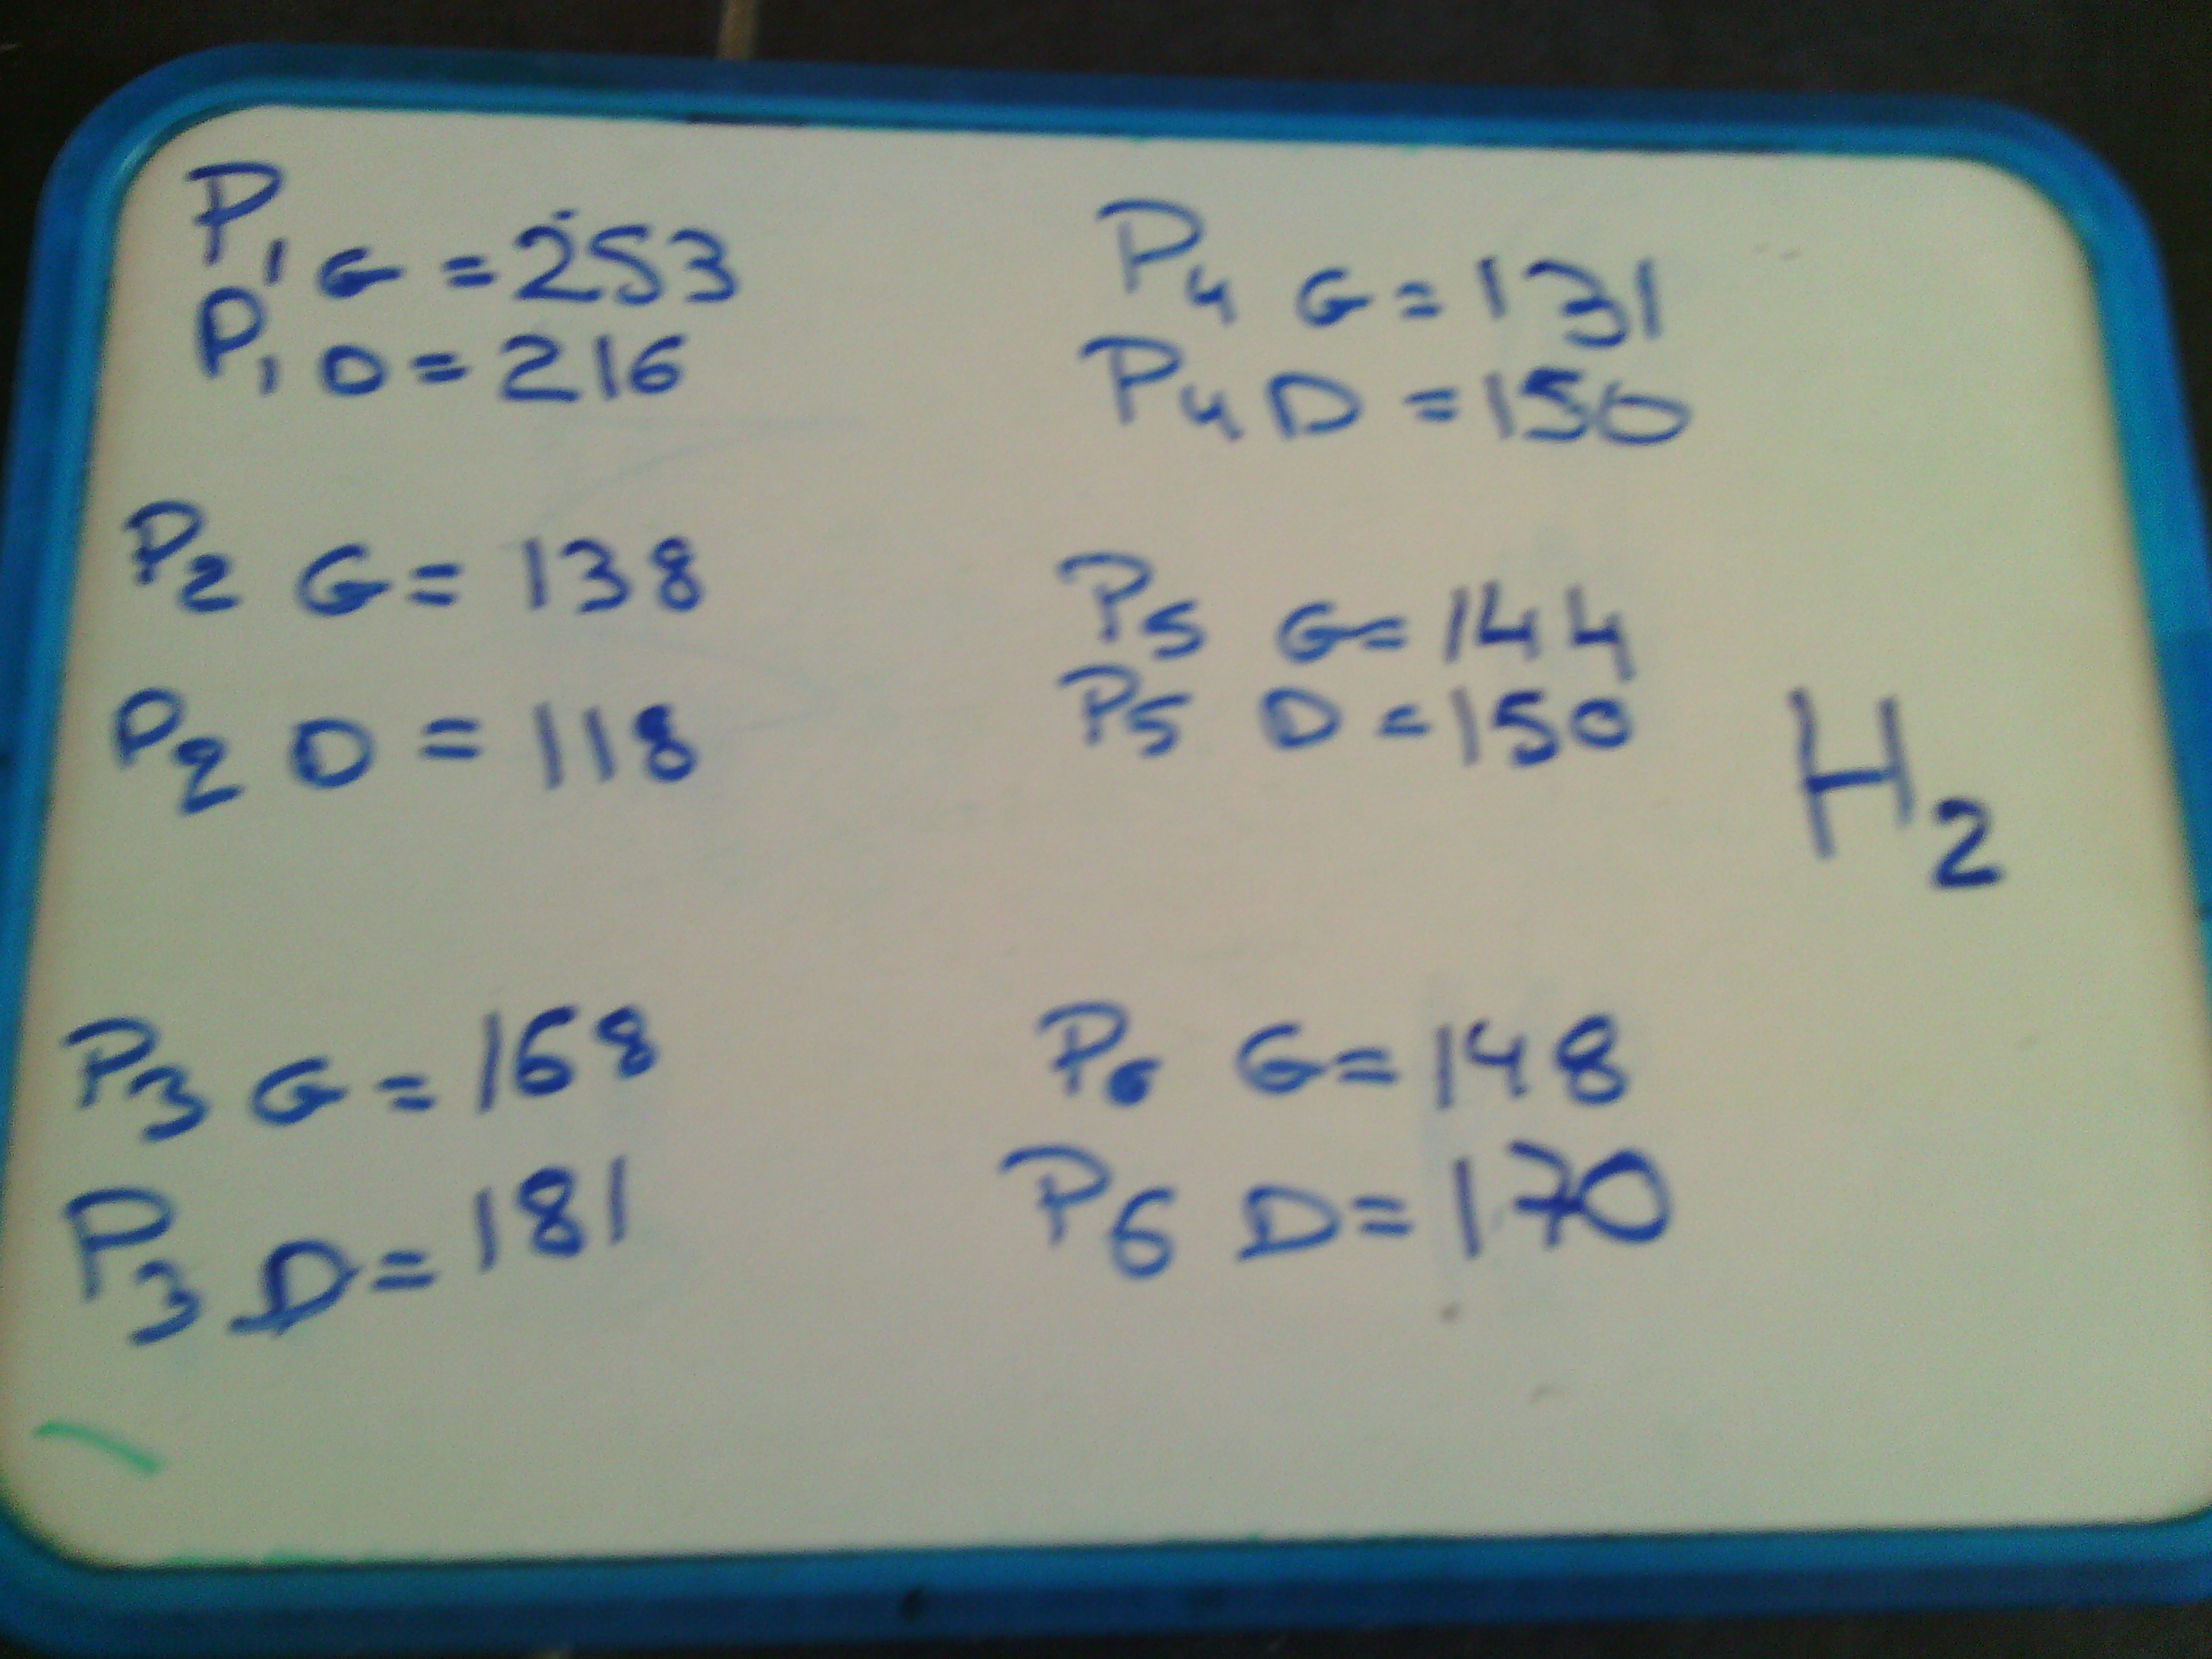 P1 G = 253
P1 D = 216
P2 G = 138
P2 D = 118
P3 G = 168
P3 D = 181
P4 G = 131
P4 D = 150
P5 G = 144
P5 D = 150
P6 G = 148
P6 D = 170
H2